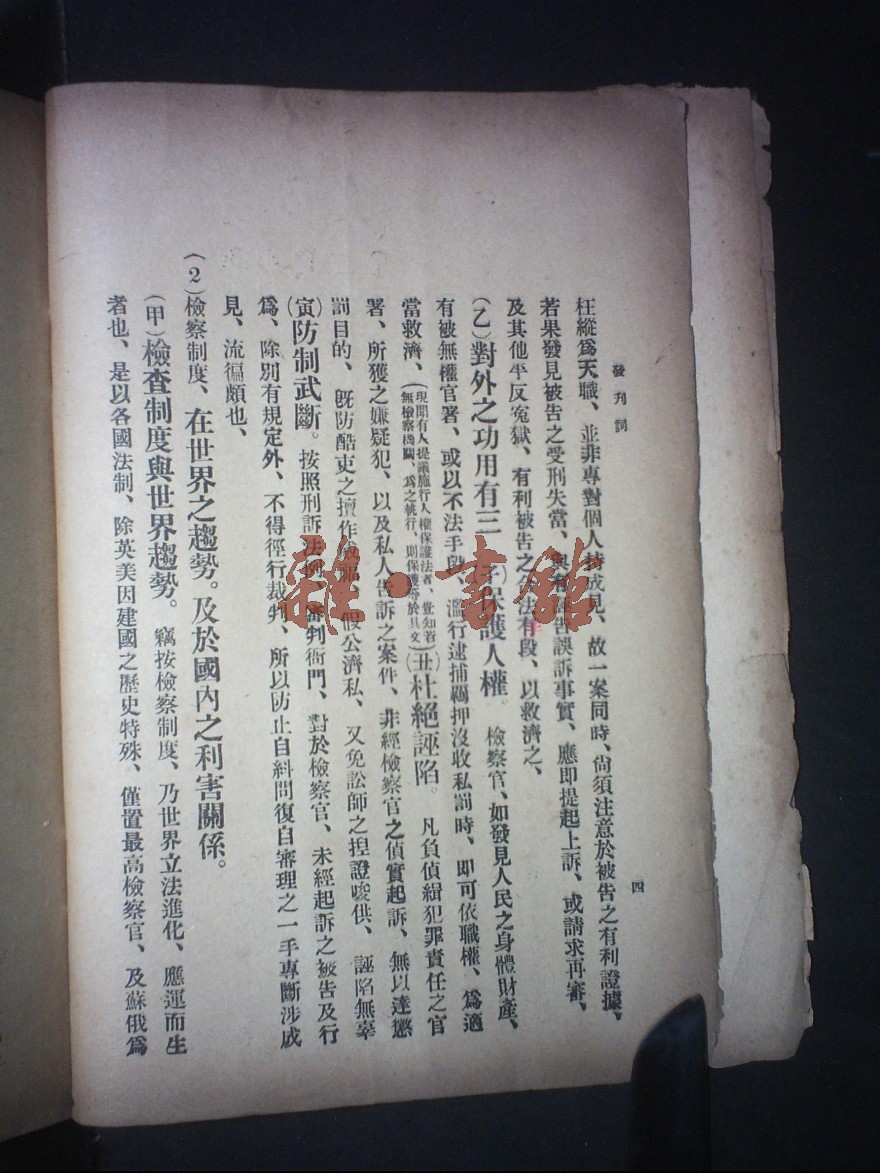 發刊詞
四
枉縱爲天職、並非專對個人持成見、故一案同時、尙須注意於被告之有利證據、
若果發見被告之受刑失當、與 告誤訴事實、應卽提起上訴、或請求再審、
及其他平反寃獄、有利被告之 法 段、以救濟之、
(乙)對外之功用有三(子)保護人權。檢察官、如發見人民之身體財產、
有被無權官署、或以不法手段、濫行逮捕羈押沒收私罰時、卽可依職權、爲適
當救濟、(現聞有人提議施行人權保護法者、豈知若
無檢察機關、爲之執行、則保護等於具文)(丑)杜絕誣陷。凡負偵緝犯罪責任之官
署、所獲之嫌疑犯、以及私人告訴之案件、非經檢察官之偵實起訴、無以達懲
罰目的、旣防酷吏之擅作威福、假公濟私、又免訟師之揑證唆供、誣陷無辜
(寅)防制武斷。按照刑訴法例、審判衙門、對於檢察官、未經起訴之被告及行
爲、除別有規定外、不得徑行裁判、所以防止自糾問復自審理之一手專斷涉成
見、流徧頗也、
(2)檢察制度、在世界之趨勢。及於國內之利害關係。
(甲)檢查制度與世界趨勢。竊按檢察制度、乃世界立法進化、應運而生
者也、是以各國法制、除英美因建國之歷史特殊、僅置最高檢察官、及蘇俄爲
雜·書館